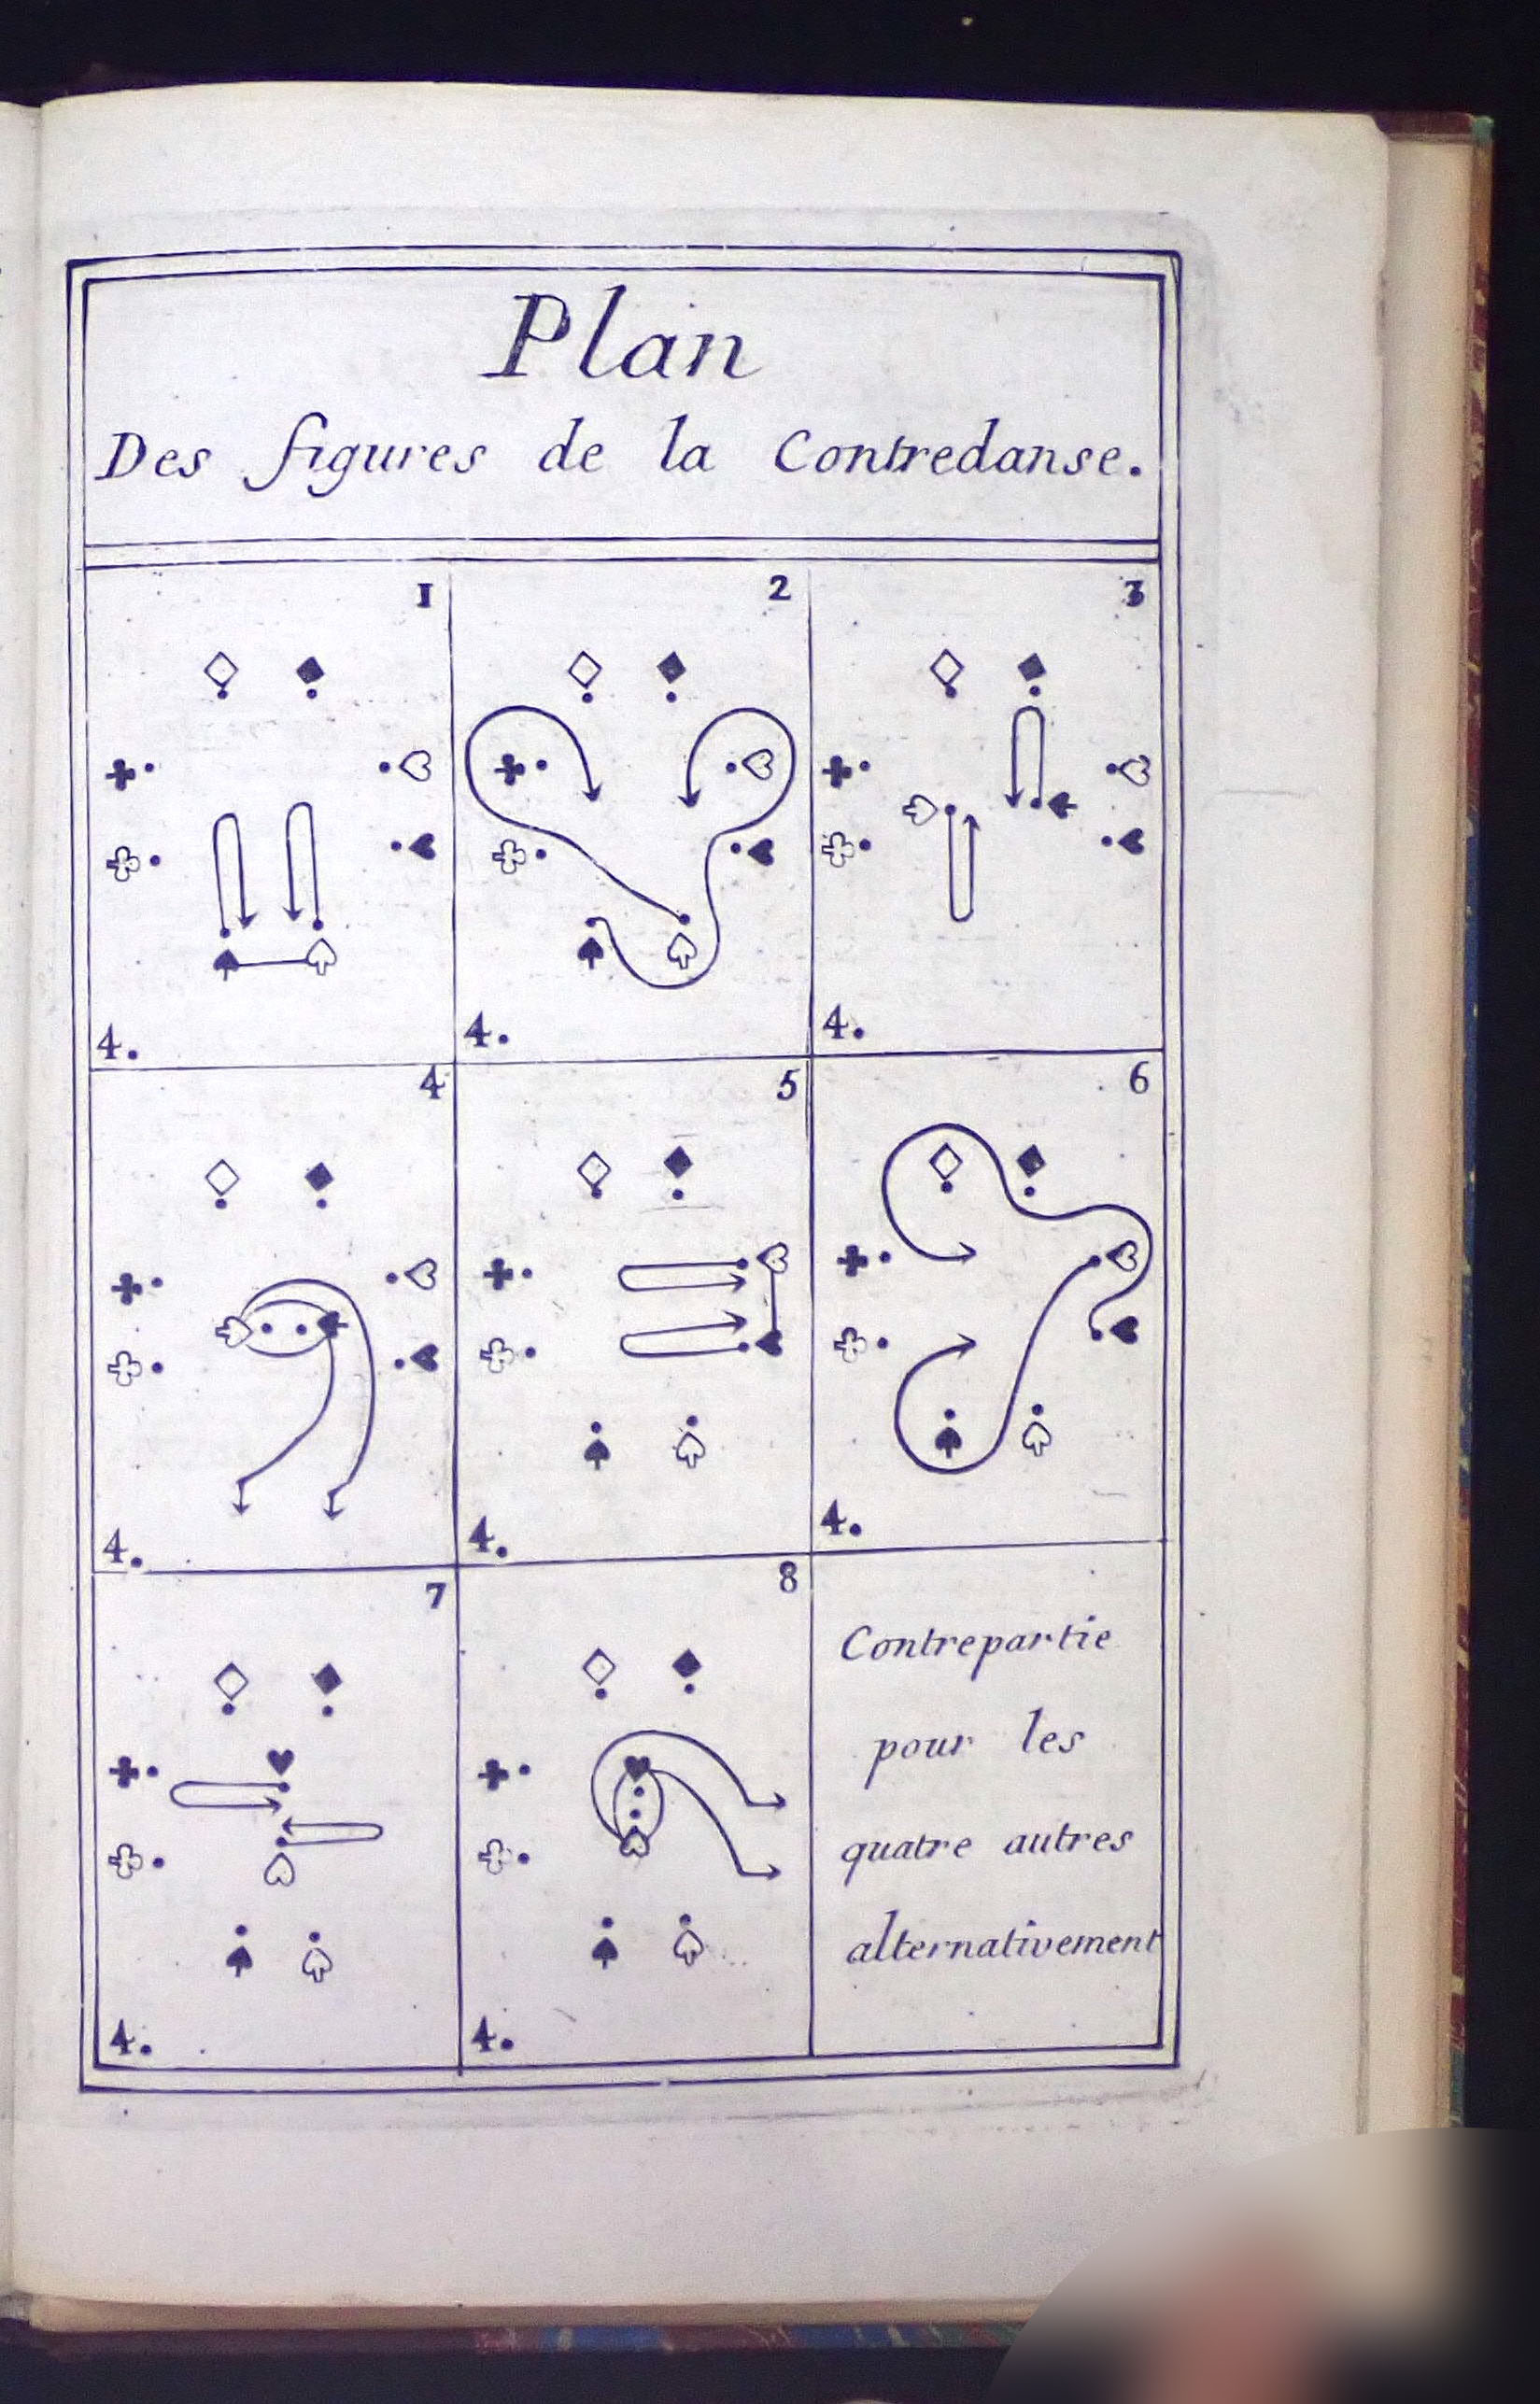 Plan
Des figures de la Contredanse.
1
2
3
4.
4.
4.
4
5
6
4.
4.
4.
7
8
Contrepartie
pour les
quatre autres
alternativement
4.
4.